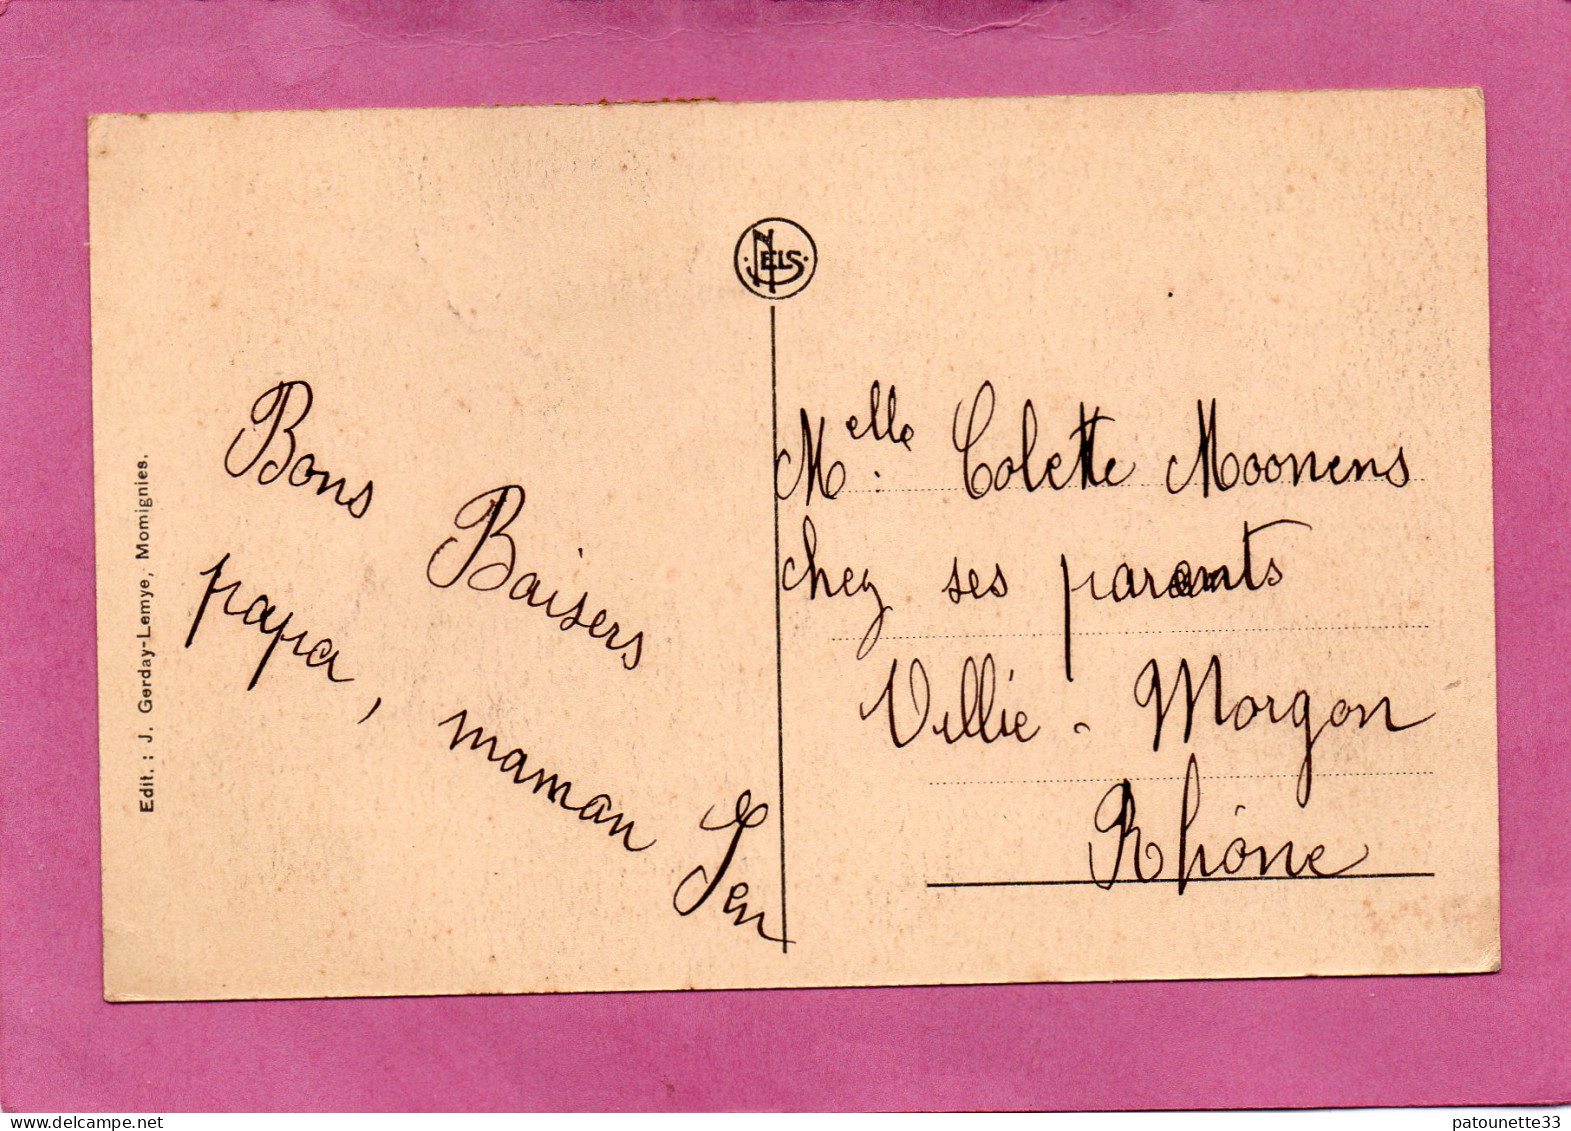 NELS
Edit. : J. Gerday-Lemye, Momignies.
Bons Baisers
papa, maman Jen
Melle. Colette Moonens
chez ses parents
Villie - Morgon
Rhône
patounette33